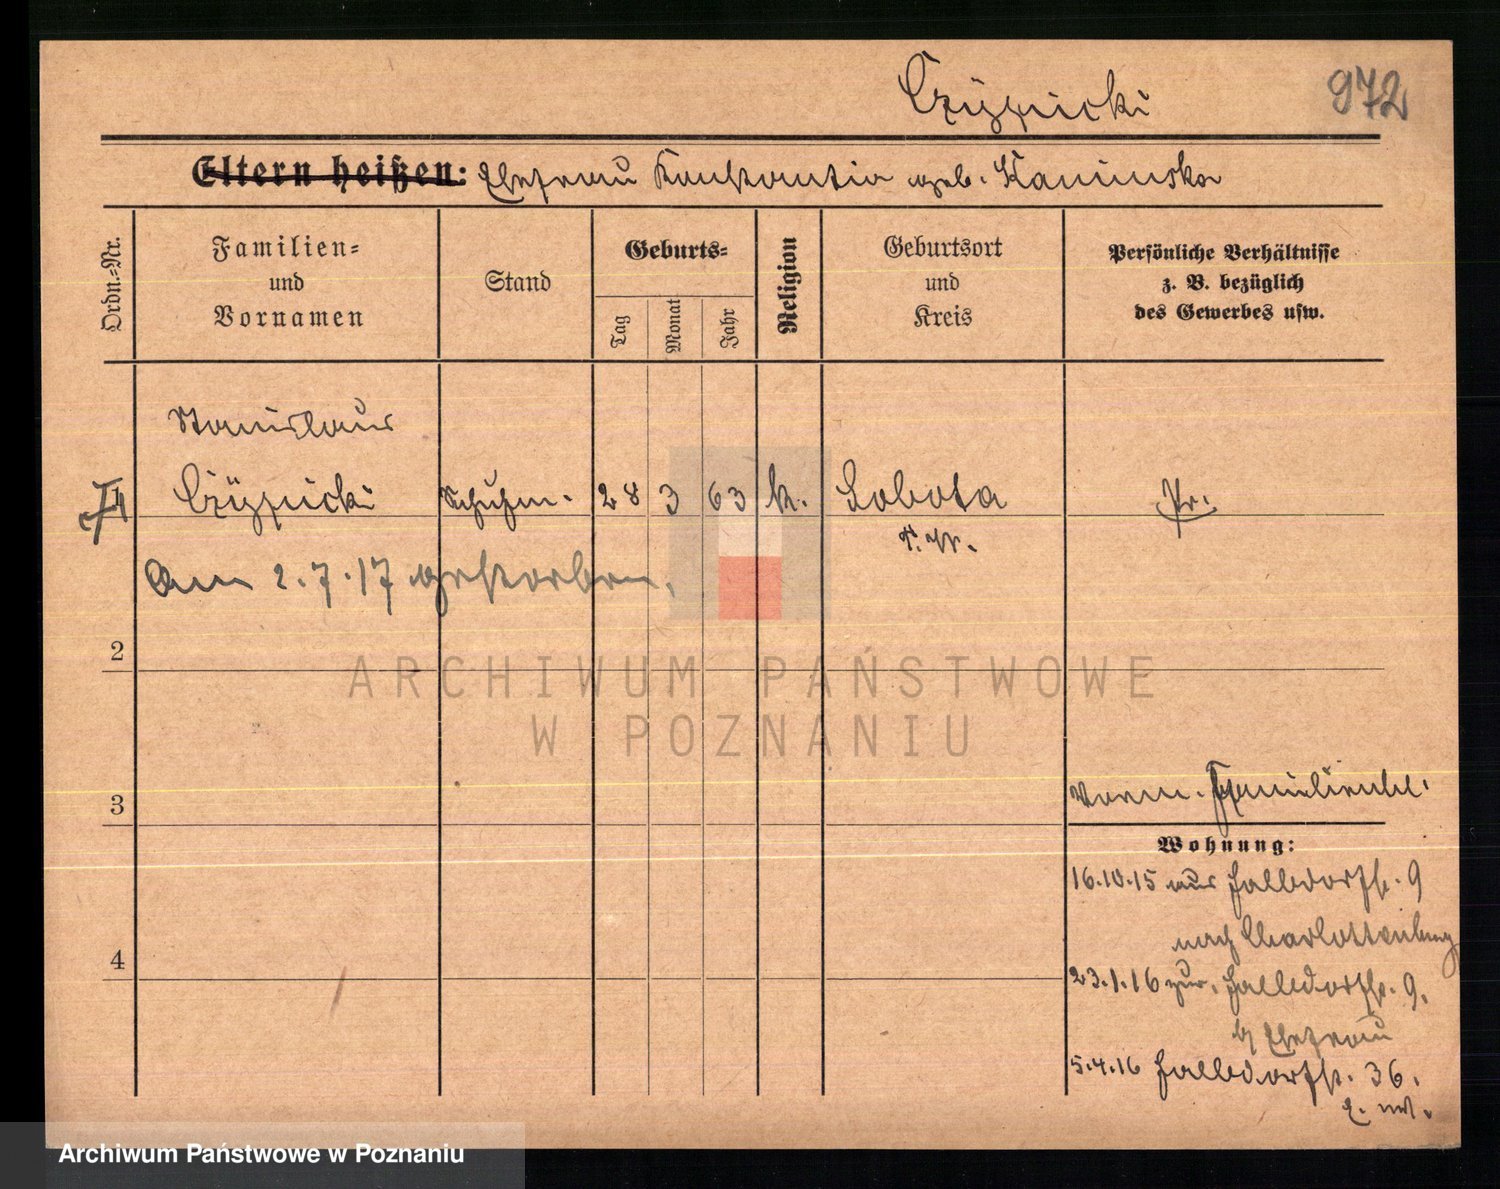 Czypicki
972
Eltern heißen: Ehefrau Konstantia geb. Kaminska
Ordn.-Nr.
Familien-
und
Vornamen
Stand
Geburts-
Tag
Monat
Jahr
Religion
Geburtsort
und
Kreis
Persönliche Verhältnisse
z. B. bezüglich
des Gewerbes usw.
Stanislaus
Czypicki
Schuhm.
28
3
63
k.
Sobota
P. W.
Pr.
Am 2.7.17 gestorben.
2
ARCHIWUM PAŃSTWOWE
W POZNANIU
3
Wohnung:
16.10.15 aus
9
nach Charlottenburg
4
23.1.16 zur.
9.
b/ Ehefrau
5.4.16
36.
Archiwum Państwowe w Poznaniu